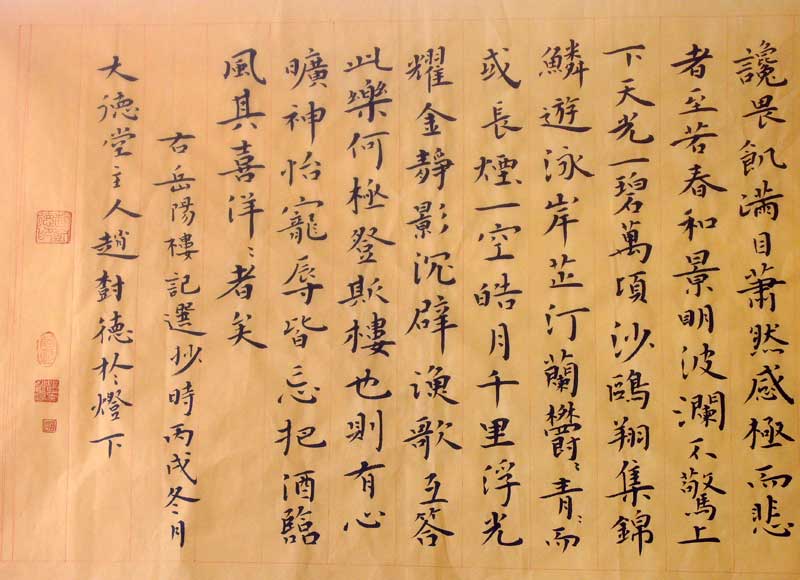 讒畏飢滿目蕭然感極而悲
者至若春和景明波瀾不驚上
下天光一碧萬頃沙鷗翔集錦
鱗遊泳岸芷汀蘭欝〻青〻而
或長煙一空皓月千里浮光
耀金靜影沉璧漁歌互答
此樂何極登斯樓也則有心
曠神怡寵辱皆忘把酒臨
風其喜洋〻者矣
右岳陽樓記選抄時丙戌冬月
大德堂主人趙樹德於燈下